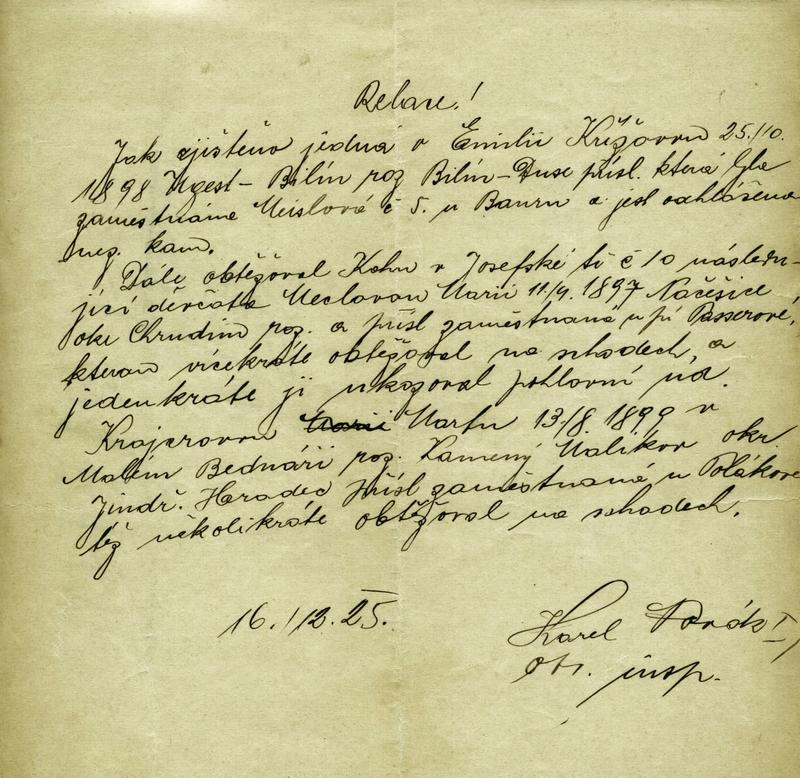 Relace!
Jak zjištěno jedná o Emilii Křížovou 25./10.
1898 Újest-Bilín roz Bilín-Duse přísl. která byla
zaměstnána Meislová č 5. u Bauru a jest odhlášena
nez. kam.
Dále obtěžoval Kohn v Josefské tř č 10 následu-
jící děvčata Meclovou Marii 11/9. 1897 Načešice
okr Chrudim roz. a přísl zaměstnaná u pí Passerové,
kterou vícekráte obtěžoval na schodech, a
jedenkráte jí ukazoval pohlavní ud.
Krajcrovou Marii Martu 13/8. 1899 v
Malím Bednáři roz. Kamený Malikov okr.
Jindř. Hradec přísl zaměstnaná u Polákové
též několikráte obtěžoval na schodech.
16./12. 25.
Karel
obv. insp.